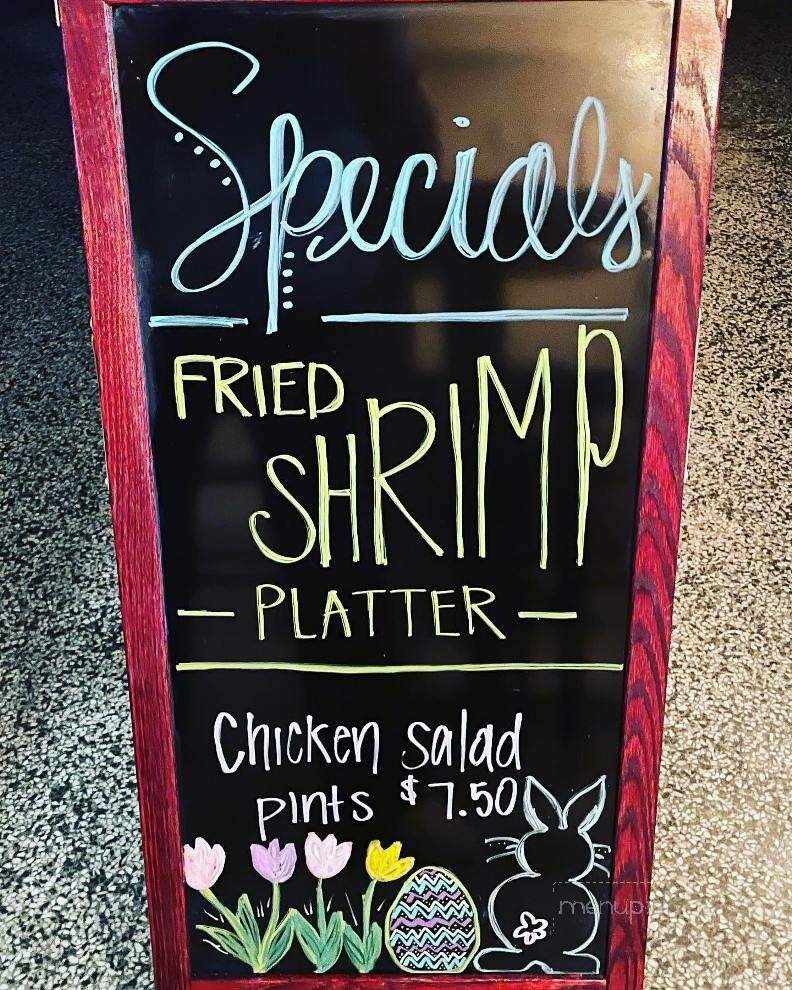 Specials
FRIED
SHRIMP
- PLATTER -
Chicken salad
pints $7.50
menup